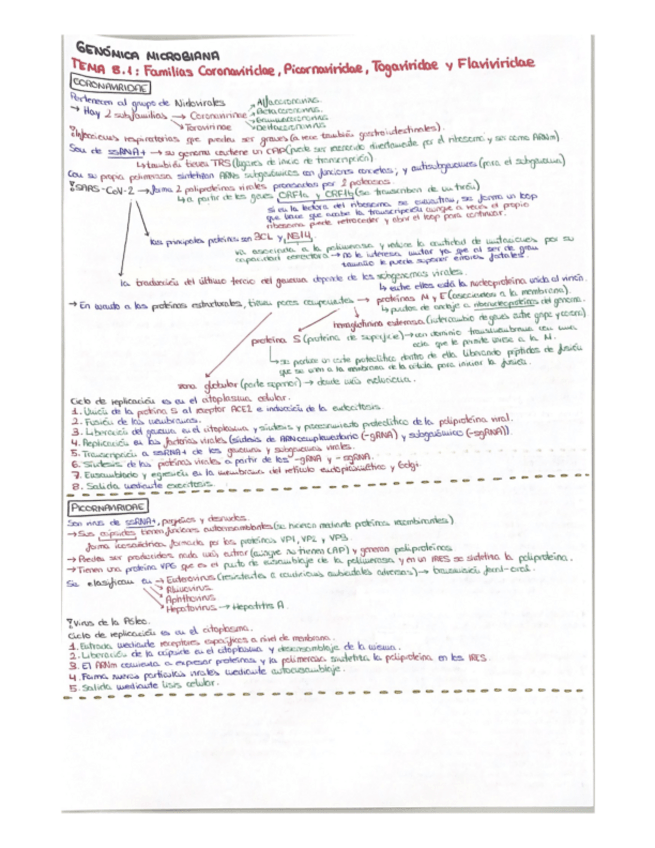 GENÓMICA MICROBIANA
TEMA 8.1: Familias Coronaviridae, Picornaviridae, Togaviridae y Flaviviridae
CORONAVIRIDAE
Pertenecen al grupo de Nidovirales
→ Hay 2 subfamilias → Coronavirinae → Alfacoronavirus.
Betacoronavirus
Gammacoronavirus
Deltacoronavirus
→ Torovirinae
Infecciones respiratorias que pueden ser graves (a veces también gastrointestinales).
Son de ssRNA+ → su genoma contiene un CAP (puede ser reconocido directamente por el ribosoma y ser como ARNm)
↳ también tienen TRS (lugares de inicio de transcripción)
Con su propia polimerasa sintetizan ARNs subgenómicos con funciones concretas, y antisubgenómicos (para el subgenómico)
SARS-CoV-2 → forma 2 poliproteínas virales procesadas por 2 proteasas
↳ a partir de los genes ORF1a y ORF1b (se transcriben de un tirón)
si en la lectura del ribosoma se encuentran, se forma un loop
que hace que acabe la transcripción aunque a veces el propio
ribosoma puede retroceder y abrir el loop para continuar.
las principales proteínas son 3CL y NS14.
va asociada a la polimerasa y reduce la cantidad de mutaciones por su
capacidad correctora → no le interesa mutar ya que al ser de gran
tamaño le puede suponer errores fatales.
la traducción del último tercio del genoma depende de los subgenomas virales.
↳ entre ellos está la nucleoproteína unida al virión.
→ En cuanto a las proteínas estructurales, tienen poros compuestos → proteínas M y E (asociadas a la membrana).
↳ puntos de anclaje a ribonucleoproteína del genoma.
hemaglutinina esterasa (intercambio de genes entre gripe y corona)
proteína S (proteína de superficie) → con dominio transmembrana con una
cola que le permite unirse a la M.
↳ se produce un corte proteolítico dentro de ella liberando péptidos de fusión
que se unen a la membrana de la célula para iniciar la fusión.
zona globular (parte superior) → donde más evoluciona.
Ciclo de replicación es en el citoplasma celular.
1. Unión de la proteína S al receptor ACE2 e inducción de la endocitosis.
2. Fusión de las membranas.
3. Liberación del genoma en el citoplasma y síntesis y procesamiento proteolítico de la poliproteína viral.
4. Replicación en las factorías virales (síntesis de ARN complementario (-gRNA) y subgenómico (-sgRNA)).
5. Transcripción a ssRNA+ de los genomas y subgenomas virales.
6. Síntesis de las proteínas virales a partir de los -gRNA y -sgRNA.
7. Ensamblado y egresión en la membrana del retículo endoplasmático y Golgi.
8. Salida mediante exocitosis.
PICORNAVIRIDAE
Son virus de ssRNA+, pequeños y desnudos.
→ Sus cápsides tienen funciones autoensamblantes (se forman mediante proteínas recombinantes)
forma icosaédrica formada por las proteínas VP1, VP2 y VP3.
→ Pueden ser producidos nada más entrar (aunque no tienen CAP) y generan poliproteínas
→ Tienen una proteína VPG que es el punto de ensamblaje de la polimerasa y en un IRES se sintetiza la poliproteína.
Se clasifican en → Enterovirus (resistentes a condiciones ambientales adversas) → transmisión fecal-oral.
→ Rhinovirus
→ Aphthovirus
→ Hepatovirus → Hepatitis A
Virus de la Polio.
Ciclo de replicación es en el citoplasma.
1. Entrada mediante receptores específicos a nivel de membrana.
2. Liberación de la cápside en el citoplasma y desensamblaje de la misma.
3. El ARNm comienza a expresar proteínas y la polimerasa sintetiza la poliproteína en los IRES.
4. Forma nuevas partículas virales mediante autoensamblaje.
5. Salida mediante lisis celular.